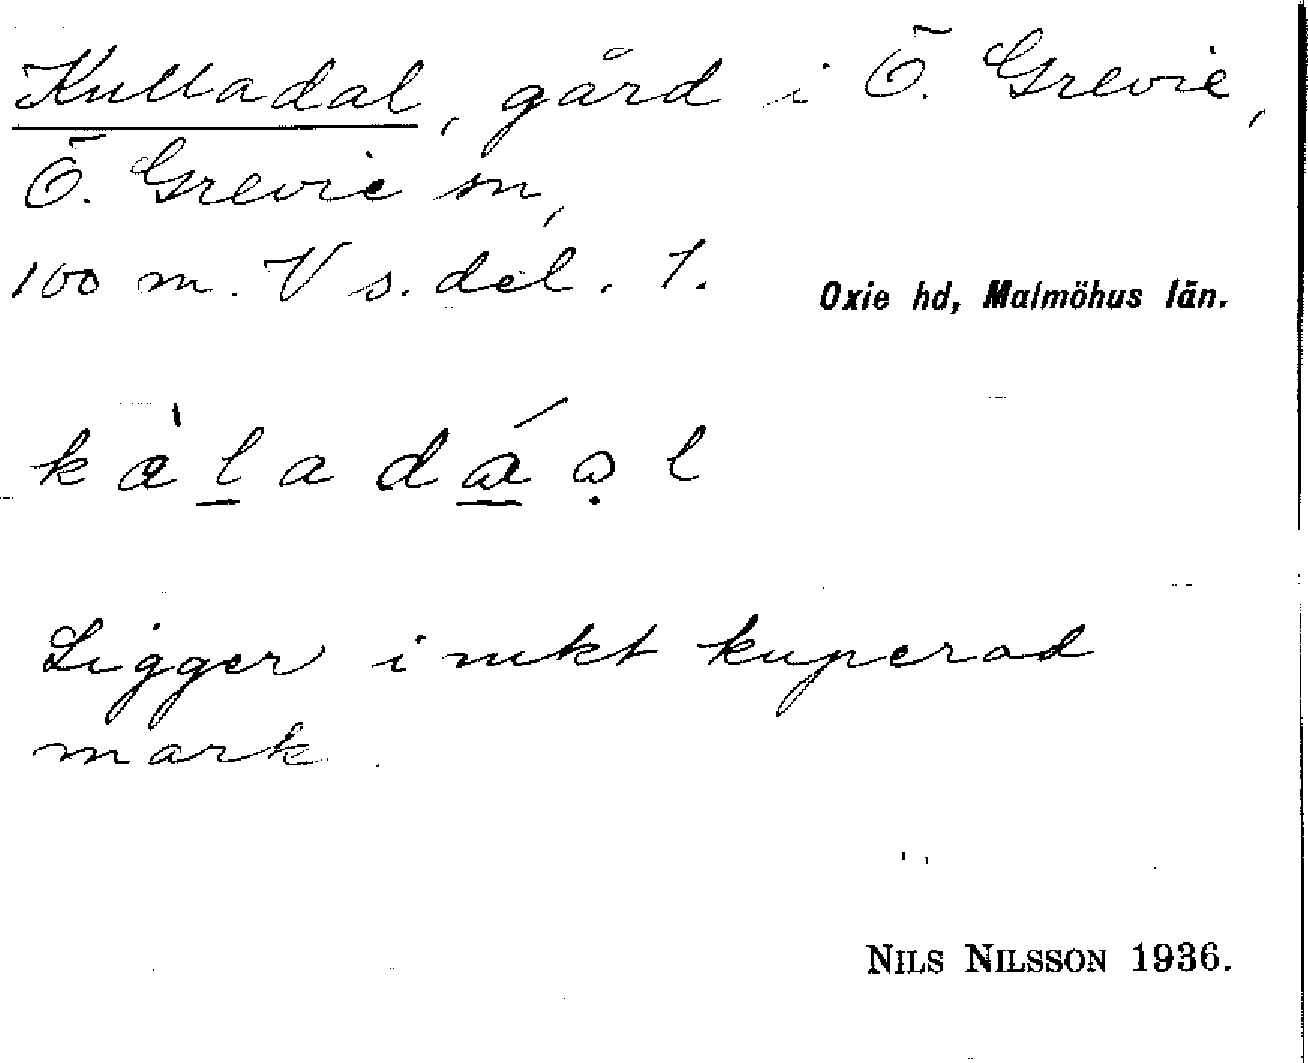 Kulladal, gård i Ö. Grevie,
Ö. Grevie sn,
100 m. V s. del. 1.
Oxie hd, Malmöhus län.
Ligger i mkt kuperad
mark.
NILS NILSSON 1936.